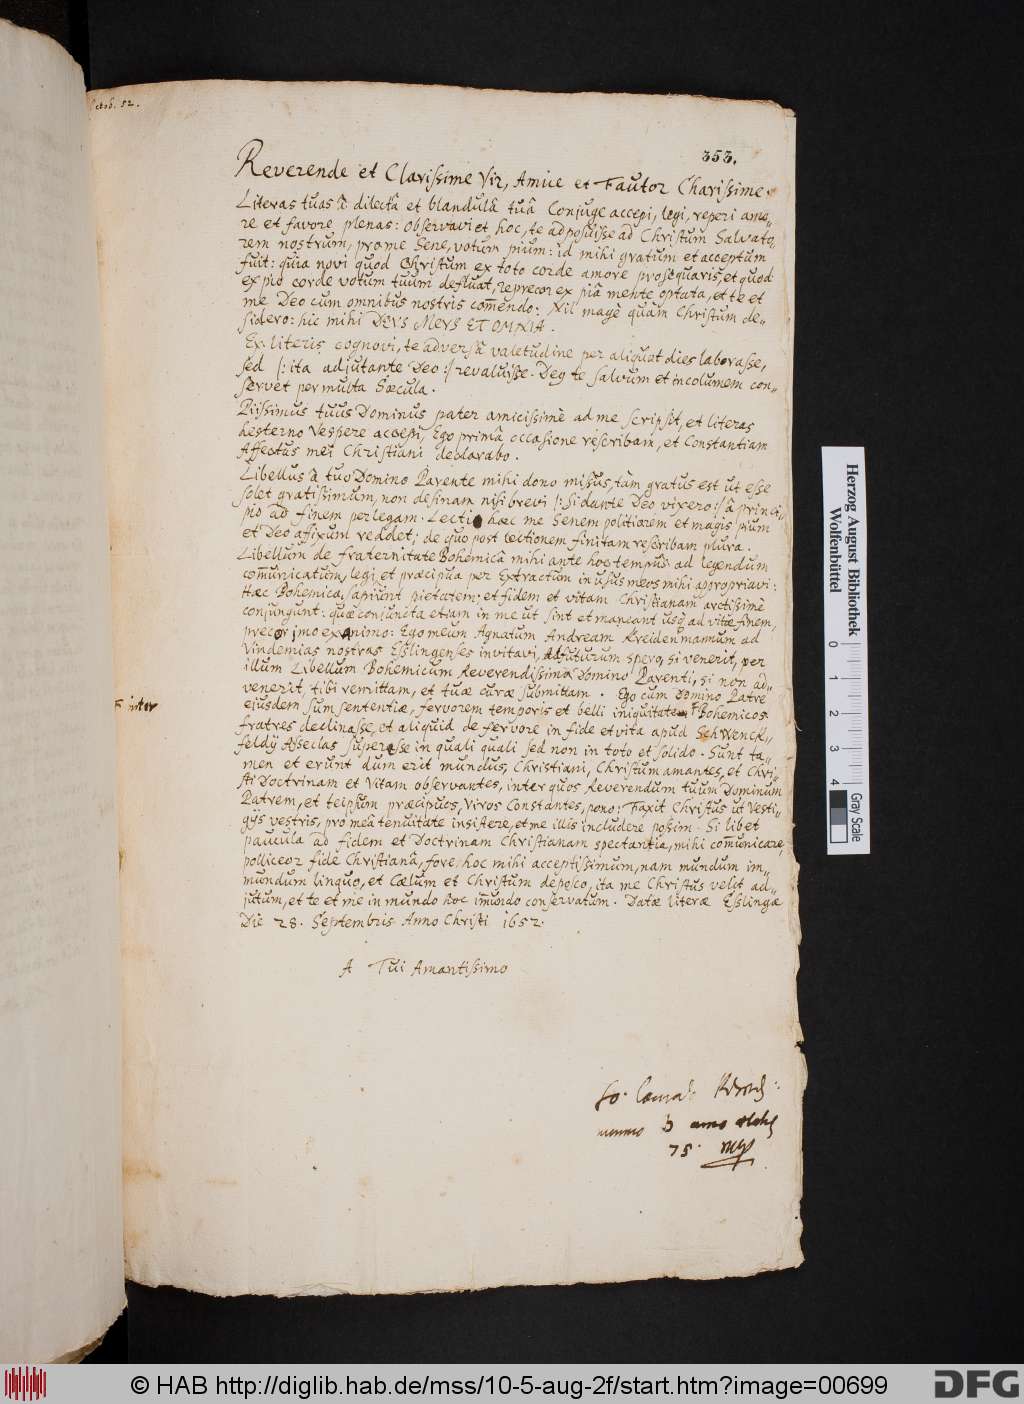 ctob. 52.
353.
Reverende et Clarissime Vir, Amice et Fautor Charissime.
Literas tuas à dilectâ et blandulâ tuâ Conjuge accepi, legi, reperi amo-
re et favore plenas: observavi et hoc, te adposuisse ad Christum Salvato,
rem nostrum, pro me Sene, votum pium: id mihi gratum et acceptum
fuit: quia novi quod Christum ex toto corde amore prosequaris, et quod
ex pio corde votum tuum defluat, reprecor ex piâ mente optata, et te et
me Deo cum omnibus nostris com̄endo: Nil magè quàm Christum de-
sidero: hic mihi DEVS MEVS ET OMNIA.
Ex literis cognovi, te adversâ valetudine per aliquot dies laborasse,
sed |: ita adjutante Deo :| revaluisse. Deus te salvum et incolumem con-
servet per multa Sæcula.
Piissimus tuus Dominus pater amicissimè ad me scripsit, et literas
hesterno Vespere accepi, Ego primâ occasione rescribam, et Constantiam
Affectus mei Christiani declarabo.
Libellus à tuo Domino Parente mihi dono missus, tam gratus est ut esse
solet gratissimum, non desinam nisi brevi |: Si dante Deo vixero :| à princi-
pio ad finem perlegam. Lectio hæc me Senem politiorem et magis pium
et Deo affixum reddet; de quo post lectionem finitam rescribam plura.
Libellum de fraternitate Bohemicâ mihi ante hoc tempus ad legendum
com̄unicatum, legi, et præcipua per Extractum in usus meos mihi appropriavi:
Hæc Bohemica, sapiunt pietatem; et fidem et vitam Christianam arctissimè
conjungunt: quæ conjuncta etiam in me ut sint et maneant usq ad vitæ finem,
precor imo ex animo: Ego meum Agnatum Andream Kreidenmannum ad
Vindemias nostras Esslingenses invitavi, Adfuturum spero, si venerit, per
illum Libellum Bohemicum Reverendissimo Domino Parenti, si non ad-
venerit, tibi remittam, et tuæ curæ submittam. Ego cum Domino Patre
ejusdem sum sententiæ, fervorem temporis et belli iniquitatem F Bohemicos
F inter
fratres declinasse, et aliquid de fervore in fide et vita apud Schwenck-
feldij Asseclas superesse in quali quali sed non in toto et solido. Sunt ta-
men et erunt dum erit mundus, Christiani, Christum amantes, et Chri-
sti Doctrinam et Vitam observantes, inter quos Reverendum tuum Dominum
Patrem, et teipsum præcipuos, Viros Constantes, pono: Faxit Christus ut Vesti-
gijs vestris, pro meâ tenuitate insistere, et me illis includere possim. Si libet
paucula ad fidem et Doctrinam Christianam spectantia, mihi com̄unicare,
polliceor fide Christianâ, fore, hoc mihi acceptissimum, nam mundum im-
mundum linquo, et Cœlum et Christum deposco, ita me Christus velit ad-
jutum, et te et me in mundo hoc im̄undo conservatum. Datæ literæ Esslingæ
Die 28. Septembris Anno Christi 1652.
A Tui Amantissimo
Jo.
75.
Herzog August Bibliothek
Wolfenbüttel
0 1 2 3 4
Gray Scale
© HAB http://diglib.hab.de/mss/10-5-aug-2f/start.htm?image=00699
DFG